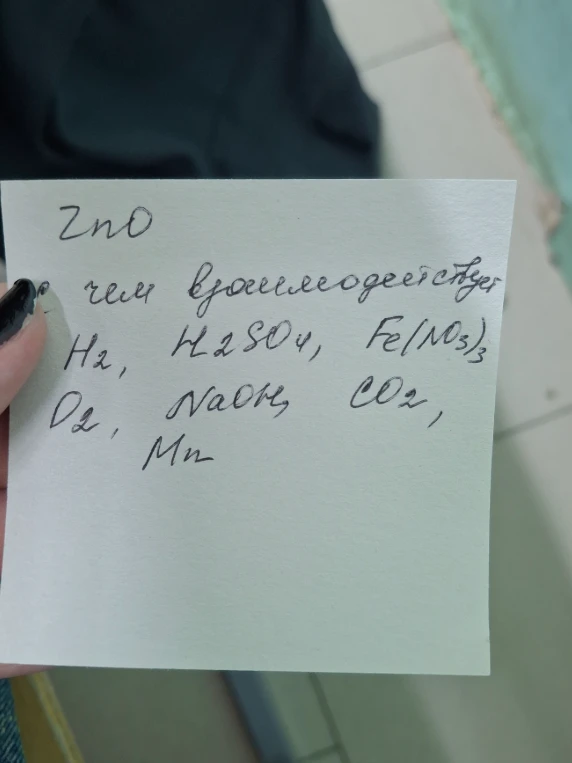 ZnO
с чем взаимодействует
H2, H2SO4, Fe(NO3)3
O2, NaOH, CO2,
Mn